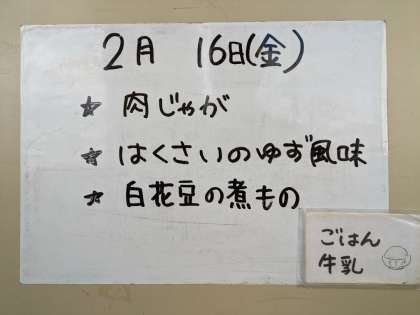 2月 16日(金)
☆ 肉じゃが
☆ はくさいのゆず風味
☆ 白花豆の煮もの
ごはん
牛乳